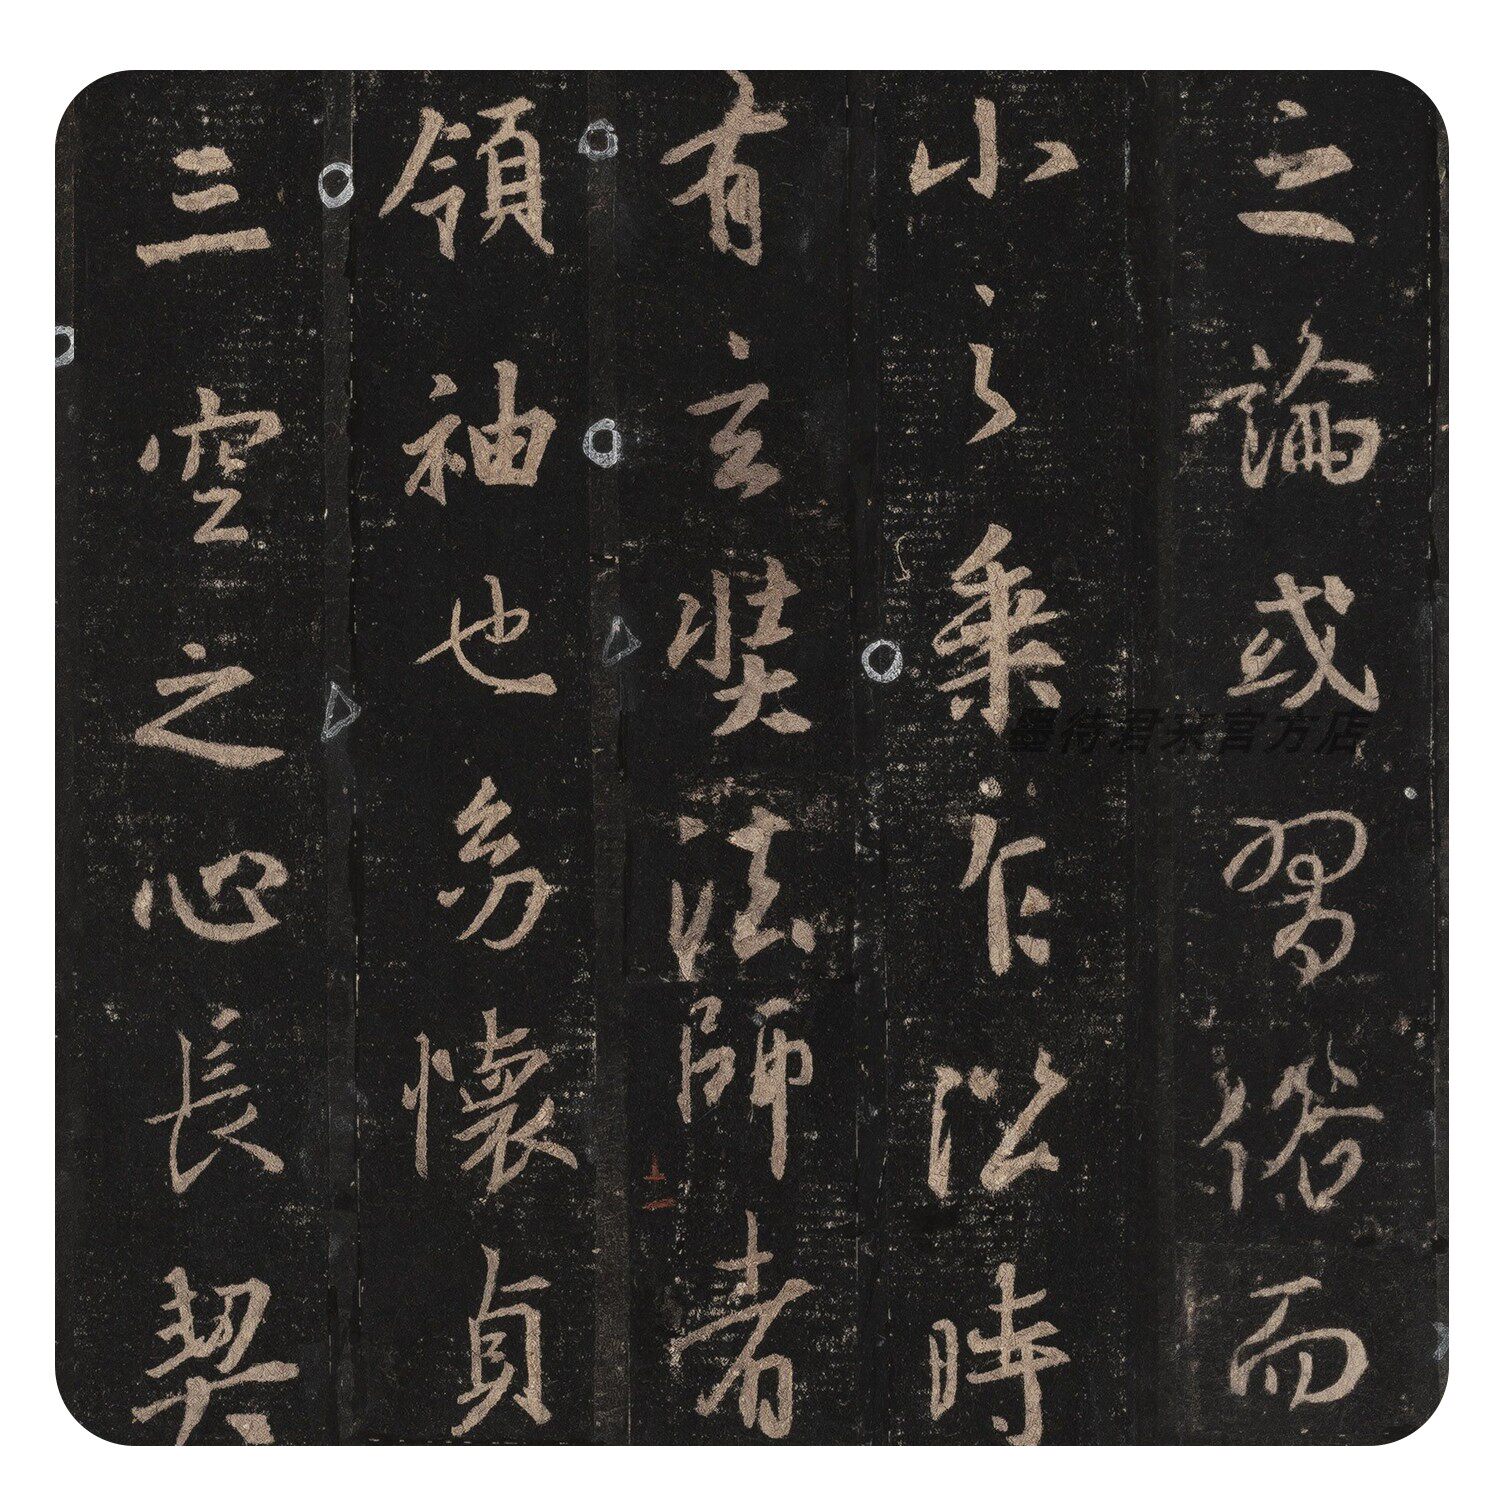 之論或習俗而
小之乘乍沿時
有玄奘法師者
領袖也幼懷貞
三空之心長契
墨待君来官方店